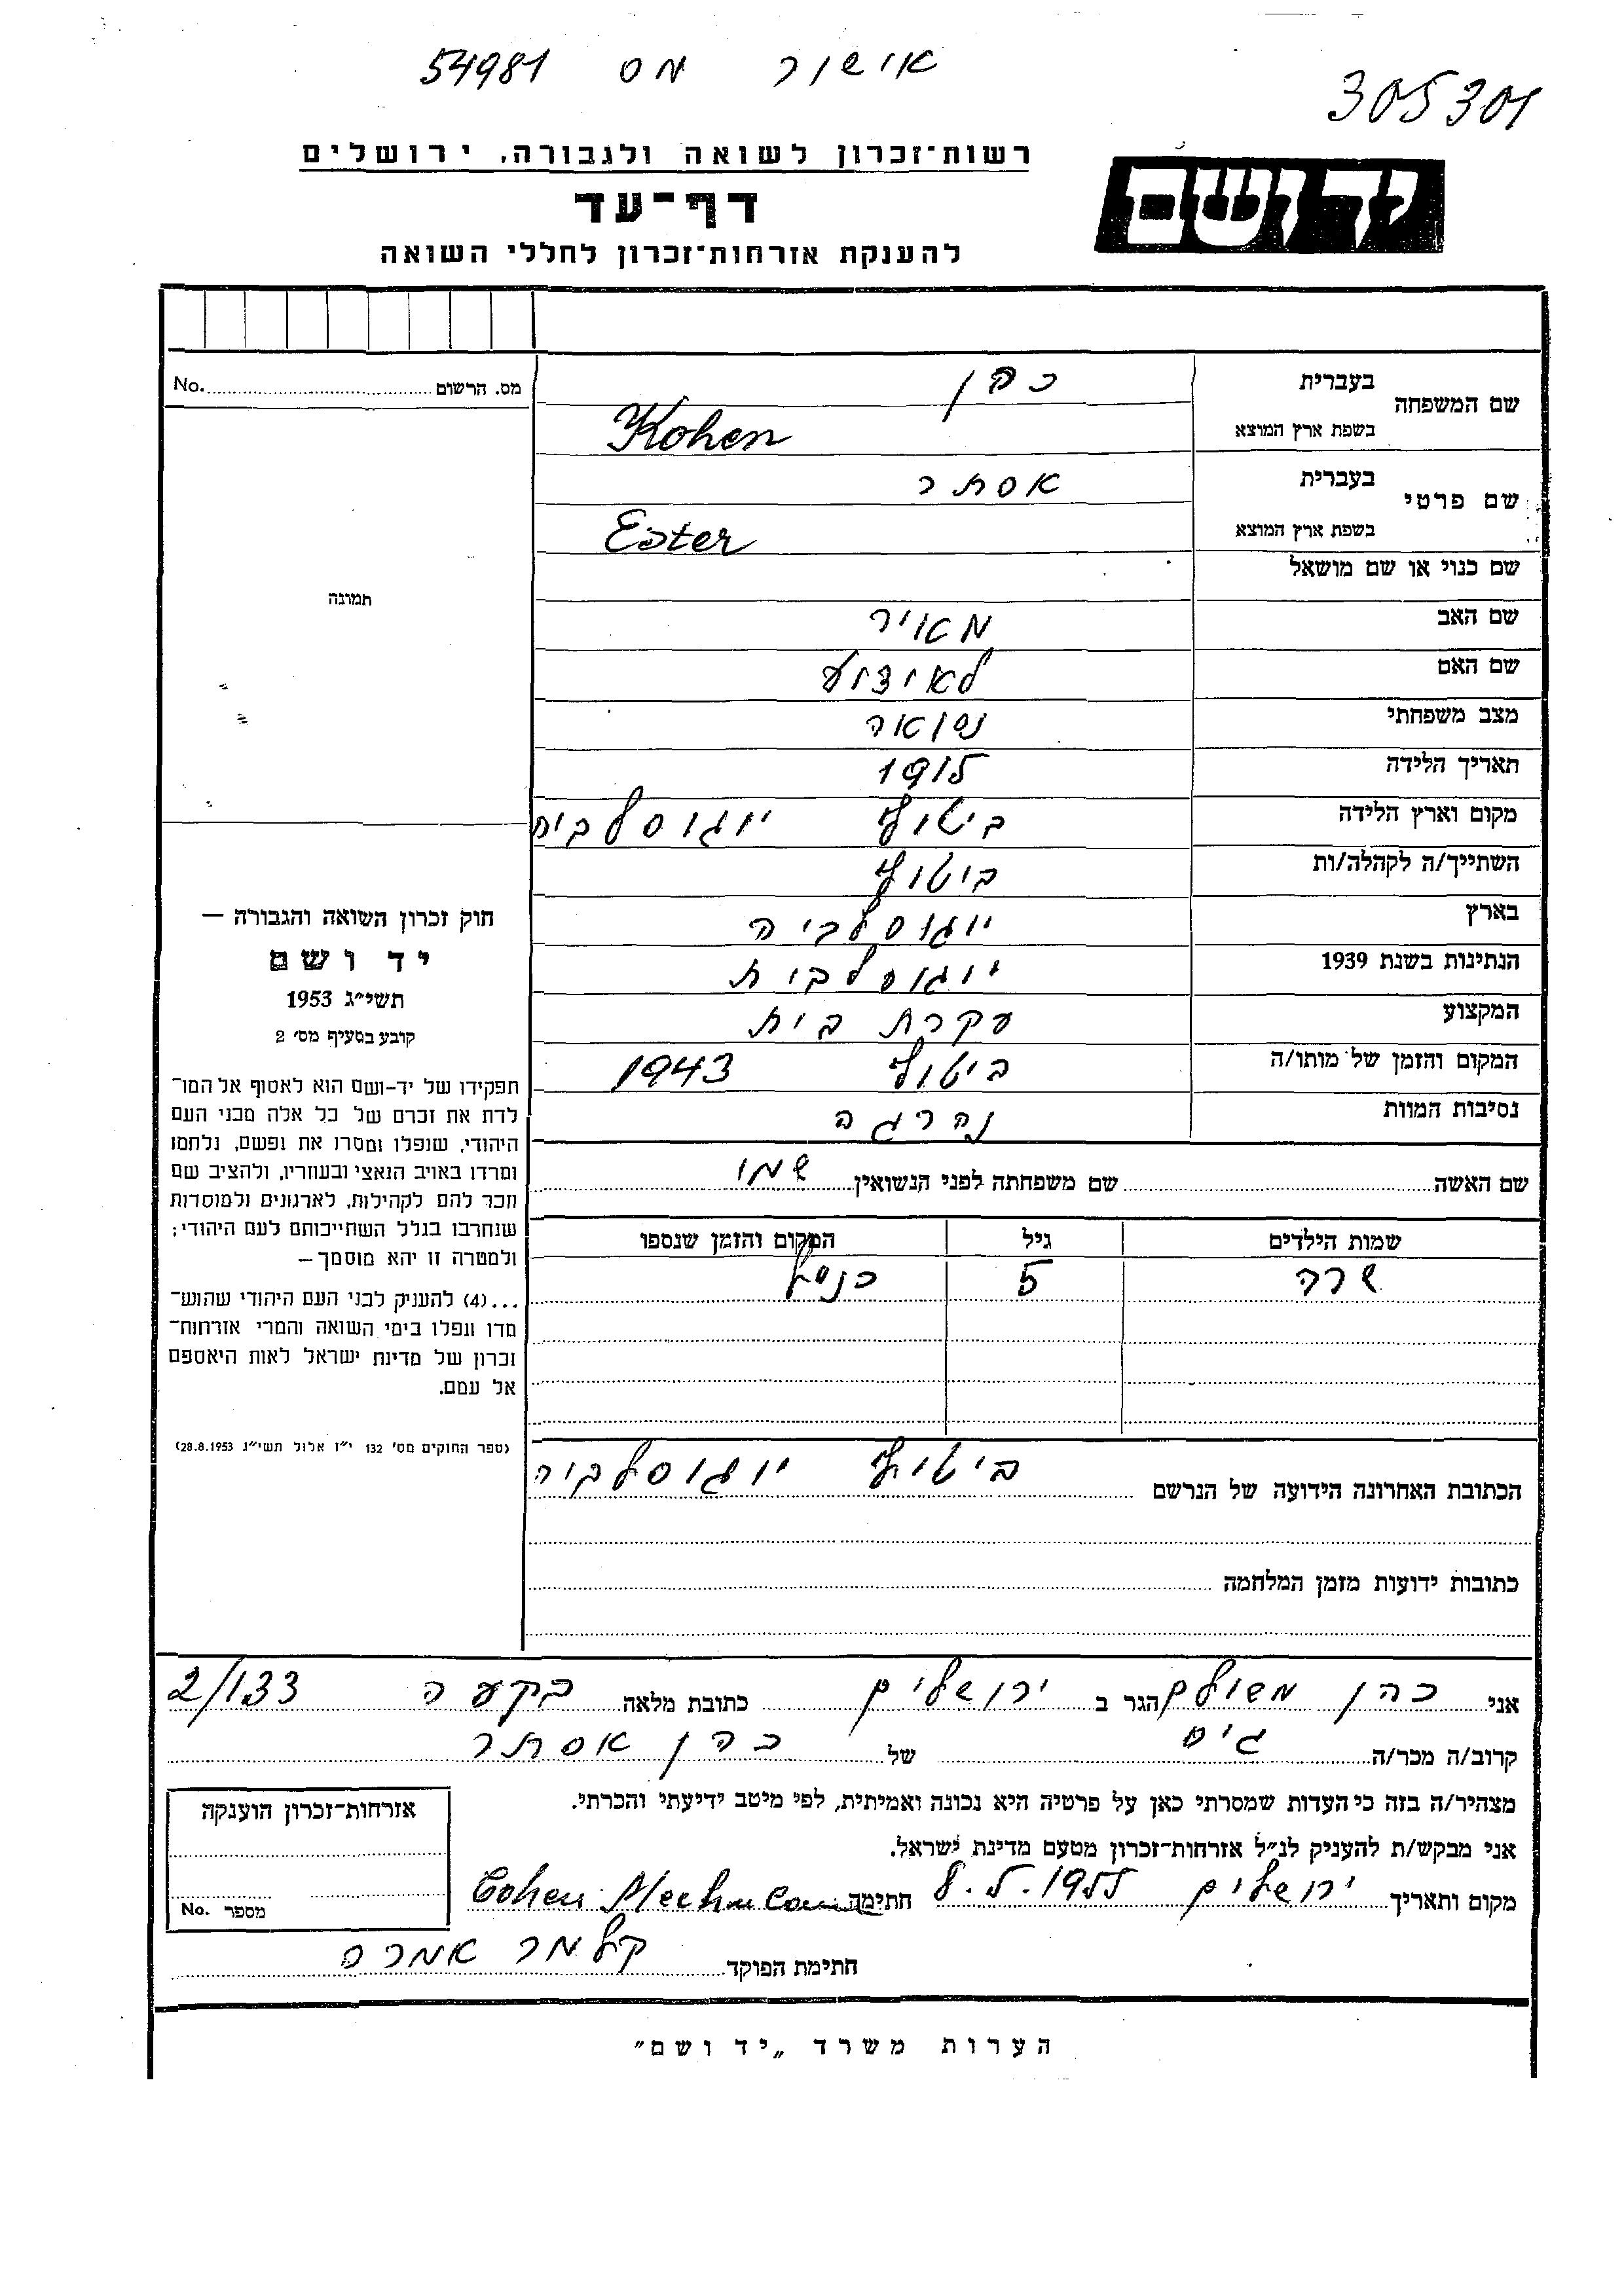 אישור מס 54981
305301
יד ושם
רשות־זכרון לשואה ולגבורה, ירושלים
דף־עד
להענקת אזרחות־זכרון לחללי השואה
מס. הרשום No.
תמונה
שם המשפחה בעברית כהן
בשפת ארץ המוצא Kohen
שם פרטי בעברית אסתר
בשפת ארץ המוצא Ester
שם כנוי או שם מושאל
שם האב מאיר
שם האם
מצב משפחתי נשואה
תאריך הלידה 1915
מקום וארץ הלידה ביטולי יוגוסלביה
השתייך/ה לקהלה/ות ביטולי
בארץ יוגוסלביה
הנתינות בשנת 1939 יוגוסלבית
המקצוע עקרת בית
המקום והזמן של מותו/ה ביטולי 1943
נסיבות המוות נהרגה
שם האשה שם משפחתה לפני הנשואין שמו
שמות הילדים גיל המקום והזמן שנספו
שרה 5 כנ"ל
הכתובת האחרונה הידועה של הנרשם ביטולי יוגוסלביה
כתובות ידועות מזמן המלחמה
חוק זכרון השואה והגבורה —
יד ושם
תשי״ג 1953
קובע בסעיף מס׳ 2
תפקידו של יד-ושם הוא לאסוף אל המו־
לדת את זכרם של כל אלה מבני העם
היהודי, שנפלו ומסרו את נפשם, נלחמו
ומרדו באויב הנאצי ובעוזריו, ולהציב שם
וזכר להם לקהילות, לארגונים ולמוסדות
שנחרבו בגלל השתייכותם לעם היהודי;
ולמטרה זו יהא מוסמך —
...(4) להעניק לבני העם היהודי שהוש־
מדו ונפלו בימי השואה והמרי אזרחות־
זכרון של מדינת ישראל לאות היאספם
אל עמם.
(ספר החוקים מס׳ 132 י״ז אלול תשי״ג 28.8.1953)
אני כהן משולם הגר ב ירושלים כתובת מלאה בקעה 2/133
קרוב/ה מכר/ה גיס של כהן אסתר
מצהיר/ה בזה כי העדות שמסרתי כאן על פרטיה היא נכונה ואמיתית, לפי מיטב ידיעתי והכרתי.
אני מבקש/ת להעניק לנ״ל אזרחות־זכרון מטעם מדינת ישראל.
מקום ותאריך ירושלים 8.5.1955 חתימה Cohen
חתימת הפוקד קלמר אמרה
אזרחות־זכרון הוענקה
מספר No.
הערות משרד „יד ושם״